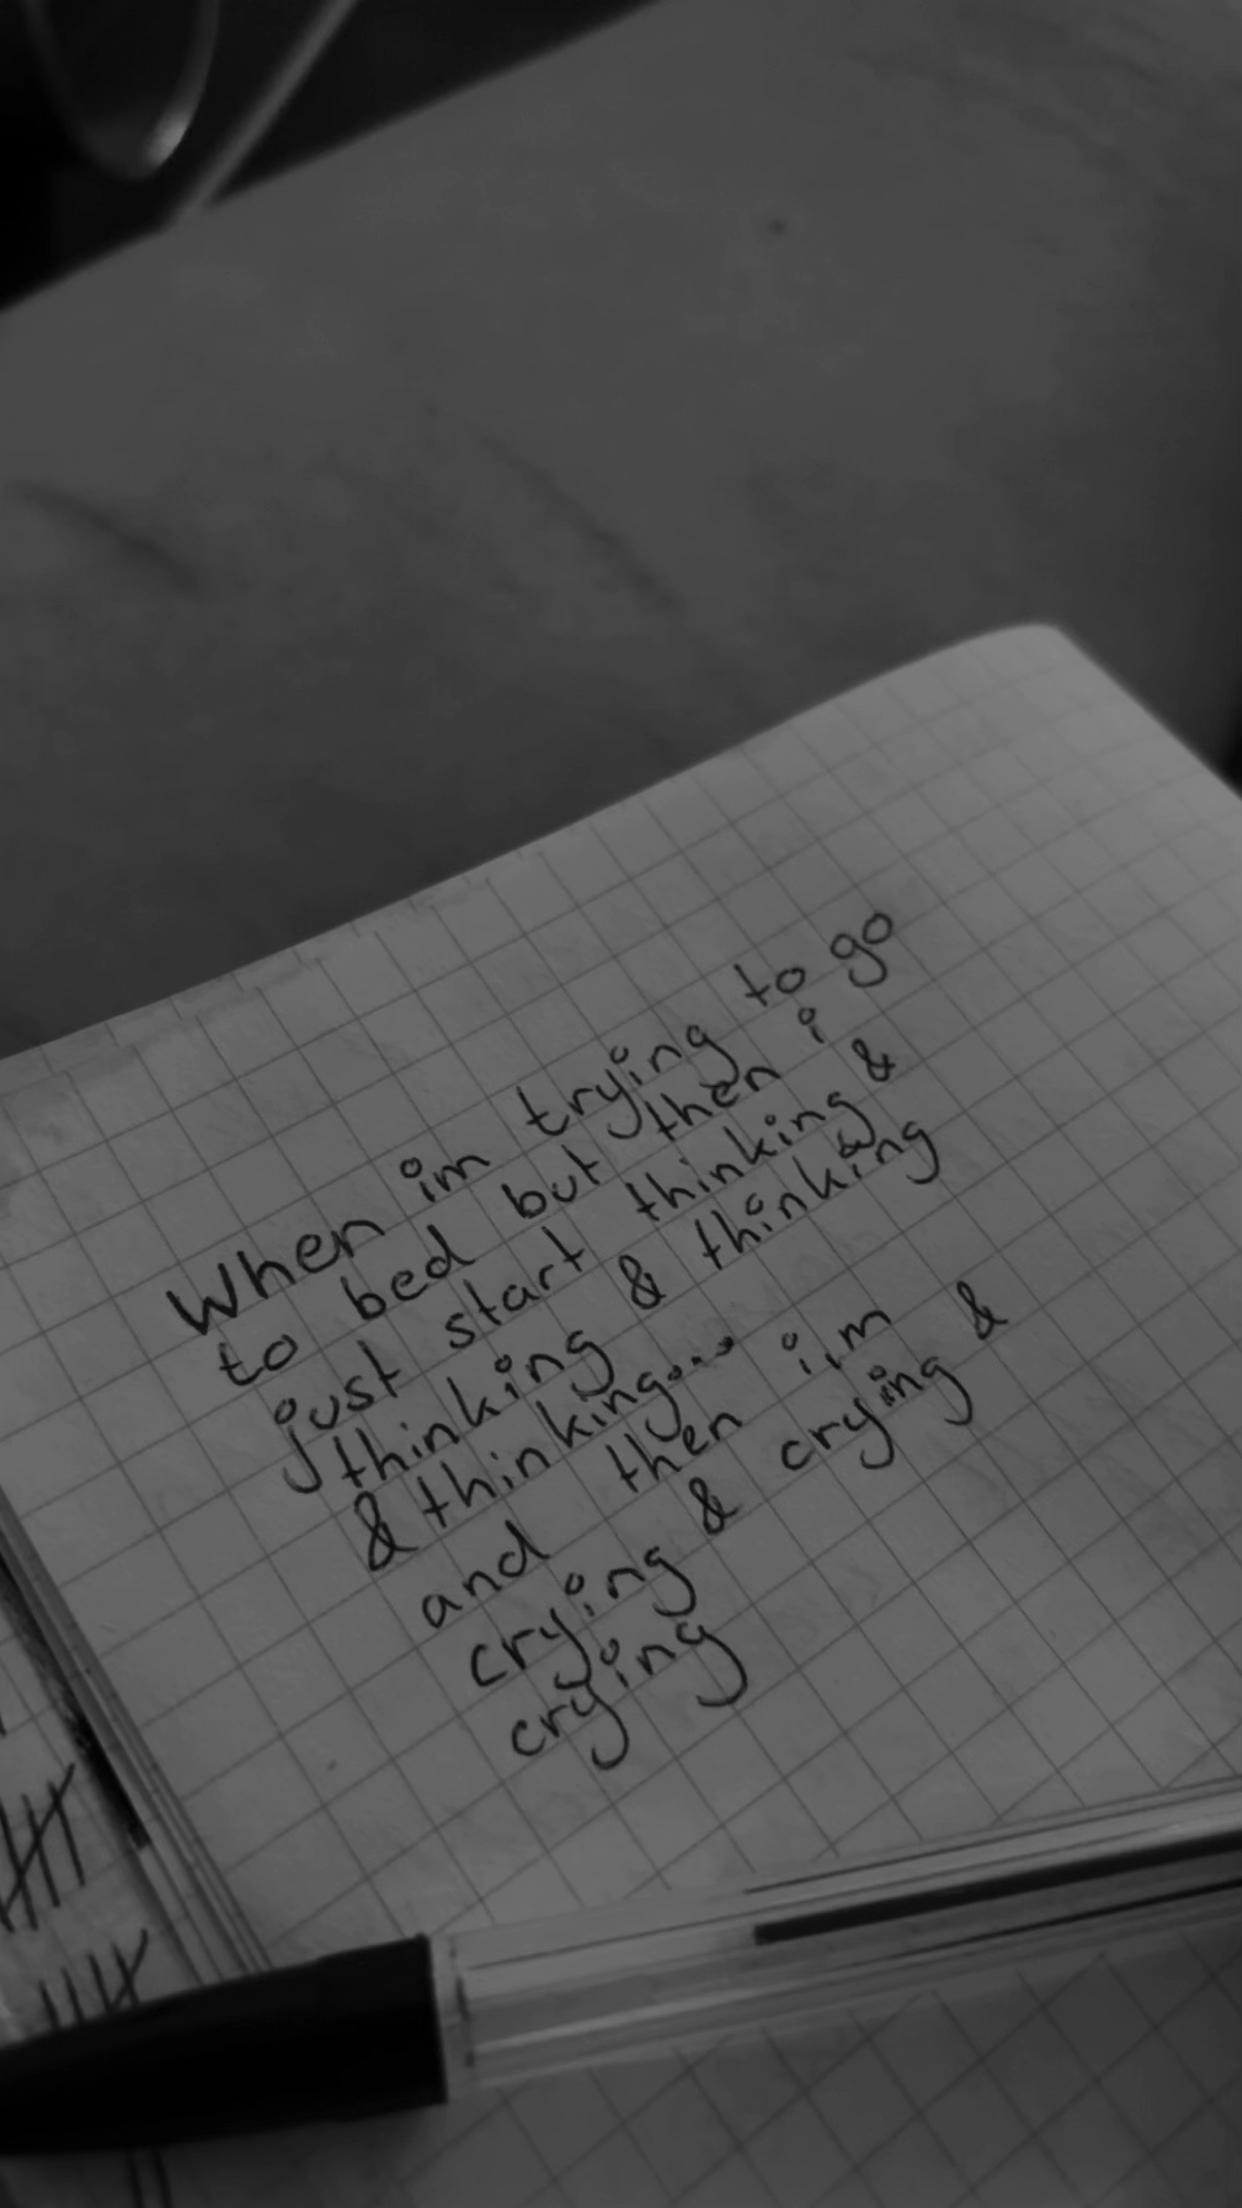 When im trying to go
to bed but then i
just start thinking &
thinking & thinking
& thinking...
and then i,m
crying & crying &
crying